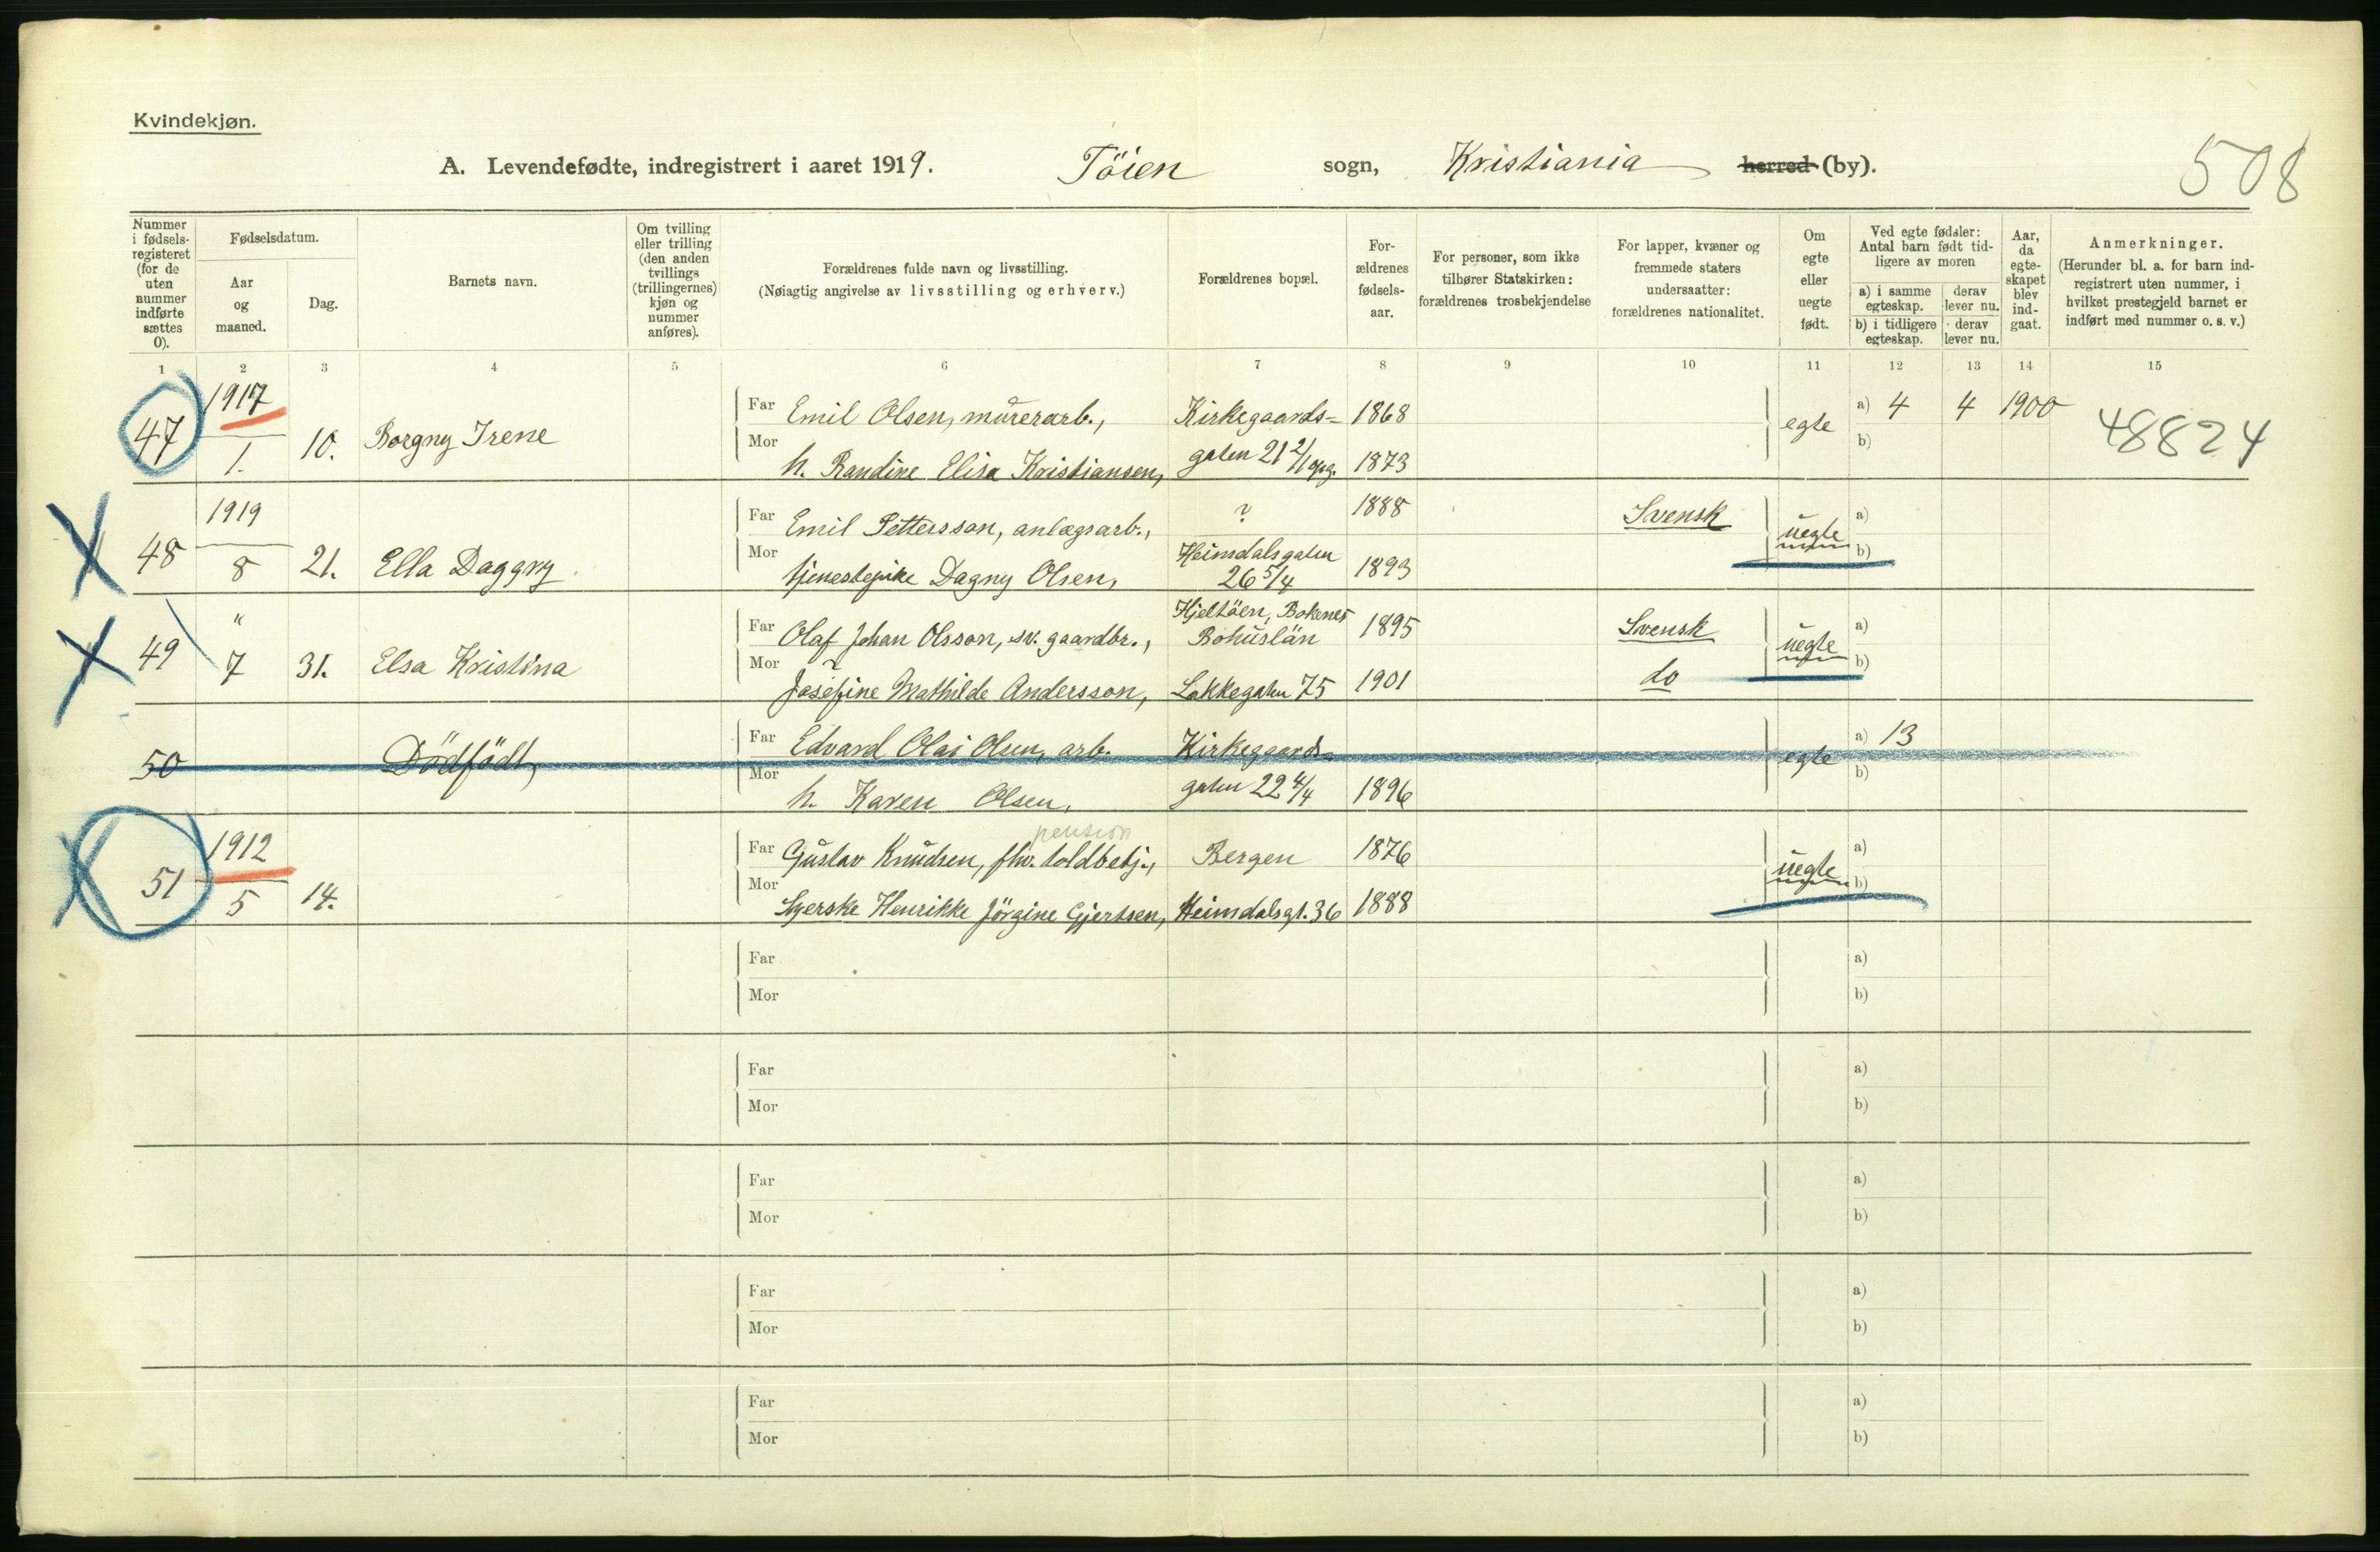 Kvindekjøn.
A. Levendefødte, indregistrert i aaret 1919. Töien sogn, Kristiania herred (by).
508
Nummer i fødsels-registeret (for de uten nummer indførte sættes 0).
Fødselsdatum.
Aar og maaned.
Dag.
Barnets navn.
Om tvilling eller trilling (den anden tvillings (trillingernes) kjøn og nummer anføres).
Forældrenes fulde navn og livsstilling.
(Nøiagtig angivelse av livsstilling og erhverv.)
Forældrenes bopæl.
For-ældrenes fødsels-aar.
For personer, som ikke tilhører Statskirken: forældrenes trosbekjendelse
For lapper, kvæner og fremmede staters undersaatter: forældrenes nationalitet.
Om egte eller uegte født.
Ved egte fødsler: Antal barn født tid-ligere av moren
a) i samme egteskap.
derav lever nu.
b) i tidligere egteskap.
derav lever nu.
Aar, da egte-skapet blev ind-gaat.
Anmerkninger.
(Herunder bl. a. for barn ind-registrert uten nummer, i hvilket prestegjeld barnet er indført med nummer o. s. v.)
1 2 3 4 5 6 7 8 9 10 11 12 13 14 15
47 1917 1. 10. Borgny Irene
Far Emil Olsen, mürerarb., Kirkegaards- 1868
Mor h. Randine Elisa Kristiansen, gaten 21 2/1 opg. 1873
egte a) 4 4 1900
b)
48824
48 1919 8 21. Ella Daggny
Far Emil Pettersson, anlægsarb., ? 1888 Svensk
Mor tjenestepike Dagny Olsen, Heimdalsgaten 26 5/4 1893
uegte a)
b)
49 " 7 31. Elsa Kristina
Far Olaf Johan Olsson, sv. gaardbr., Hjeltöen, Bokenes Bohuslän 1895 Svensk
Mor Josefine Mathilde Andersson, Lakkegaten 75 1901 do
uegte a)
b)
50 Dödfödt,
Far Edvard Olai Olsen, arb. Kirkegaards-
Mor h. Karen Olsen, gaten 22 4/4 1896
egte a) 13
b)
51 1912 5 14.
pension
Far Gustav Knudsen, fhv. toldbetj., Bergen 1876
Mor Syerske Henrikke Jörgine Gjertsen, Heimdalsgt. 36 1888
uegte a)
b)
Far a)
Mor b)
Far a)
Mor b)
Far a)
Mor b)
Far a)
Mor b)
Far a)
Mor b)